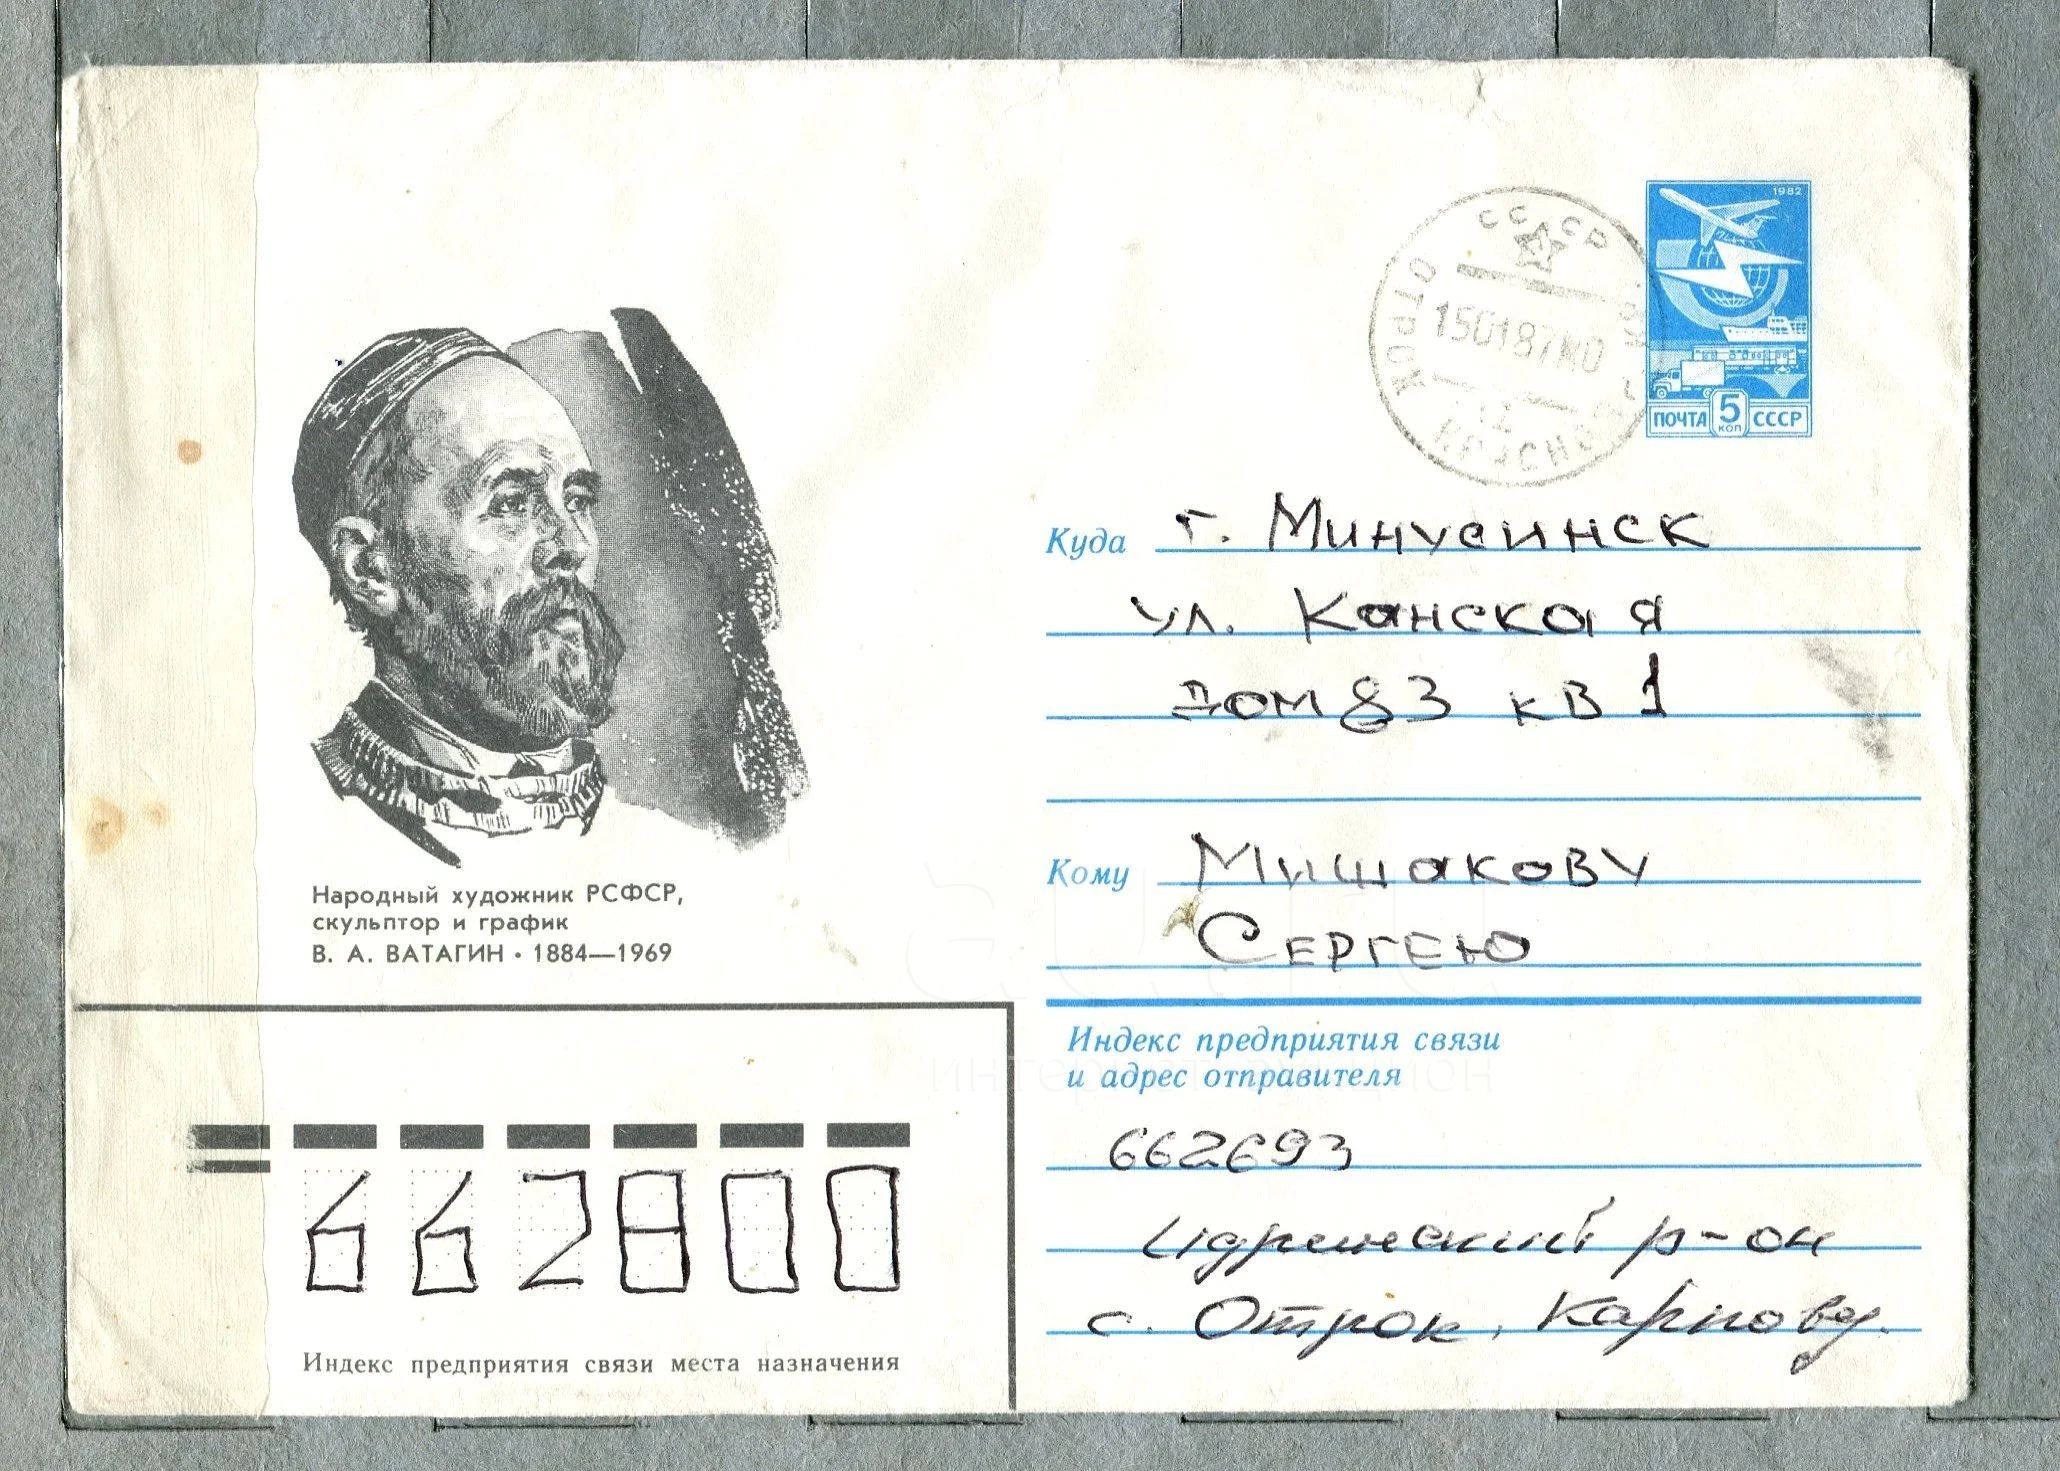 СССР
ОТРОК
150187 10
КРАСНО
1982
ПОЧТА 5 КОП СССР
Куда г. Минусинск
ул. Канская
дом 83 кв 1
Кому Мишакову
Сергею
Народный художник РСФСР,
скульптор и график
В. А. ВАТАГИН • 1884—1969
Индекс предприятия связи
и адрес отправителя
662693
Идринский р-он
с. Отрок, Карпову.
662800
Индекс предприятия связи места назначения
au.ru
интернет-аукцион